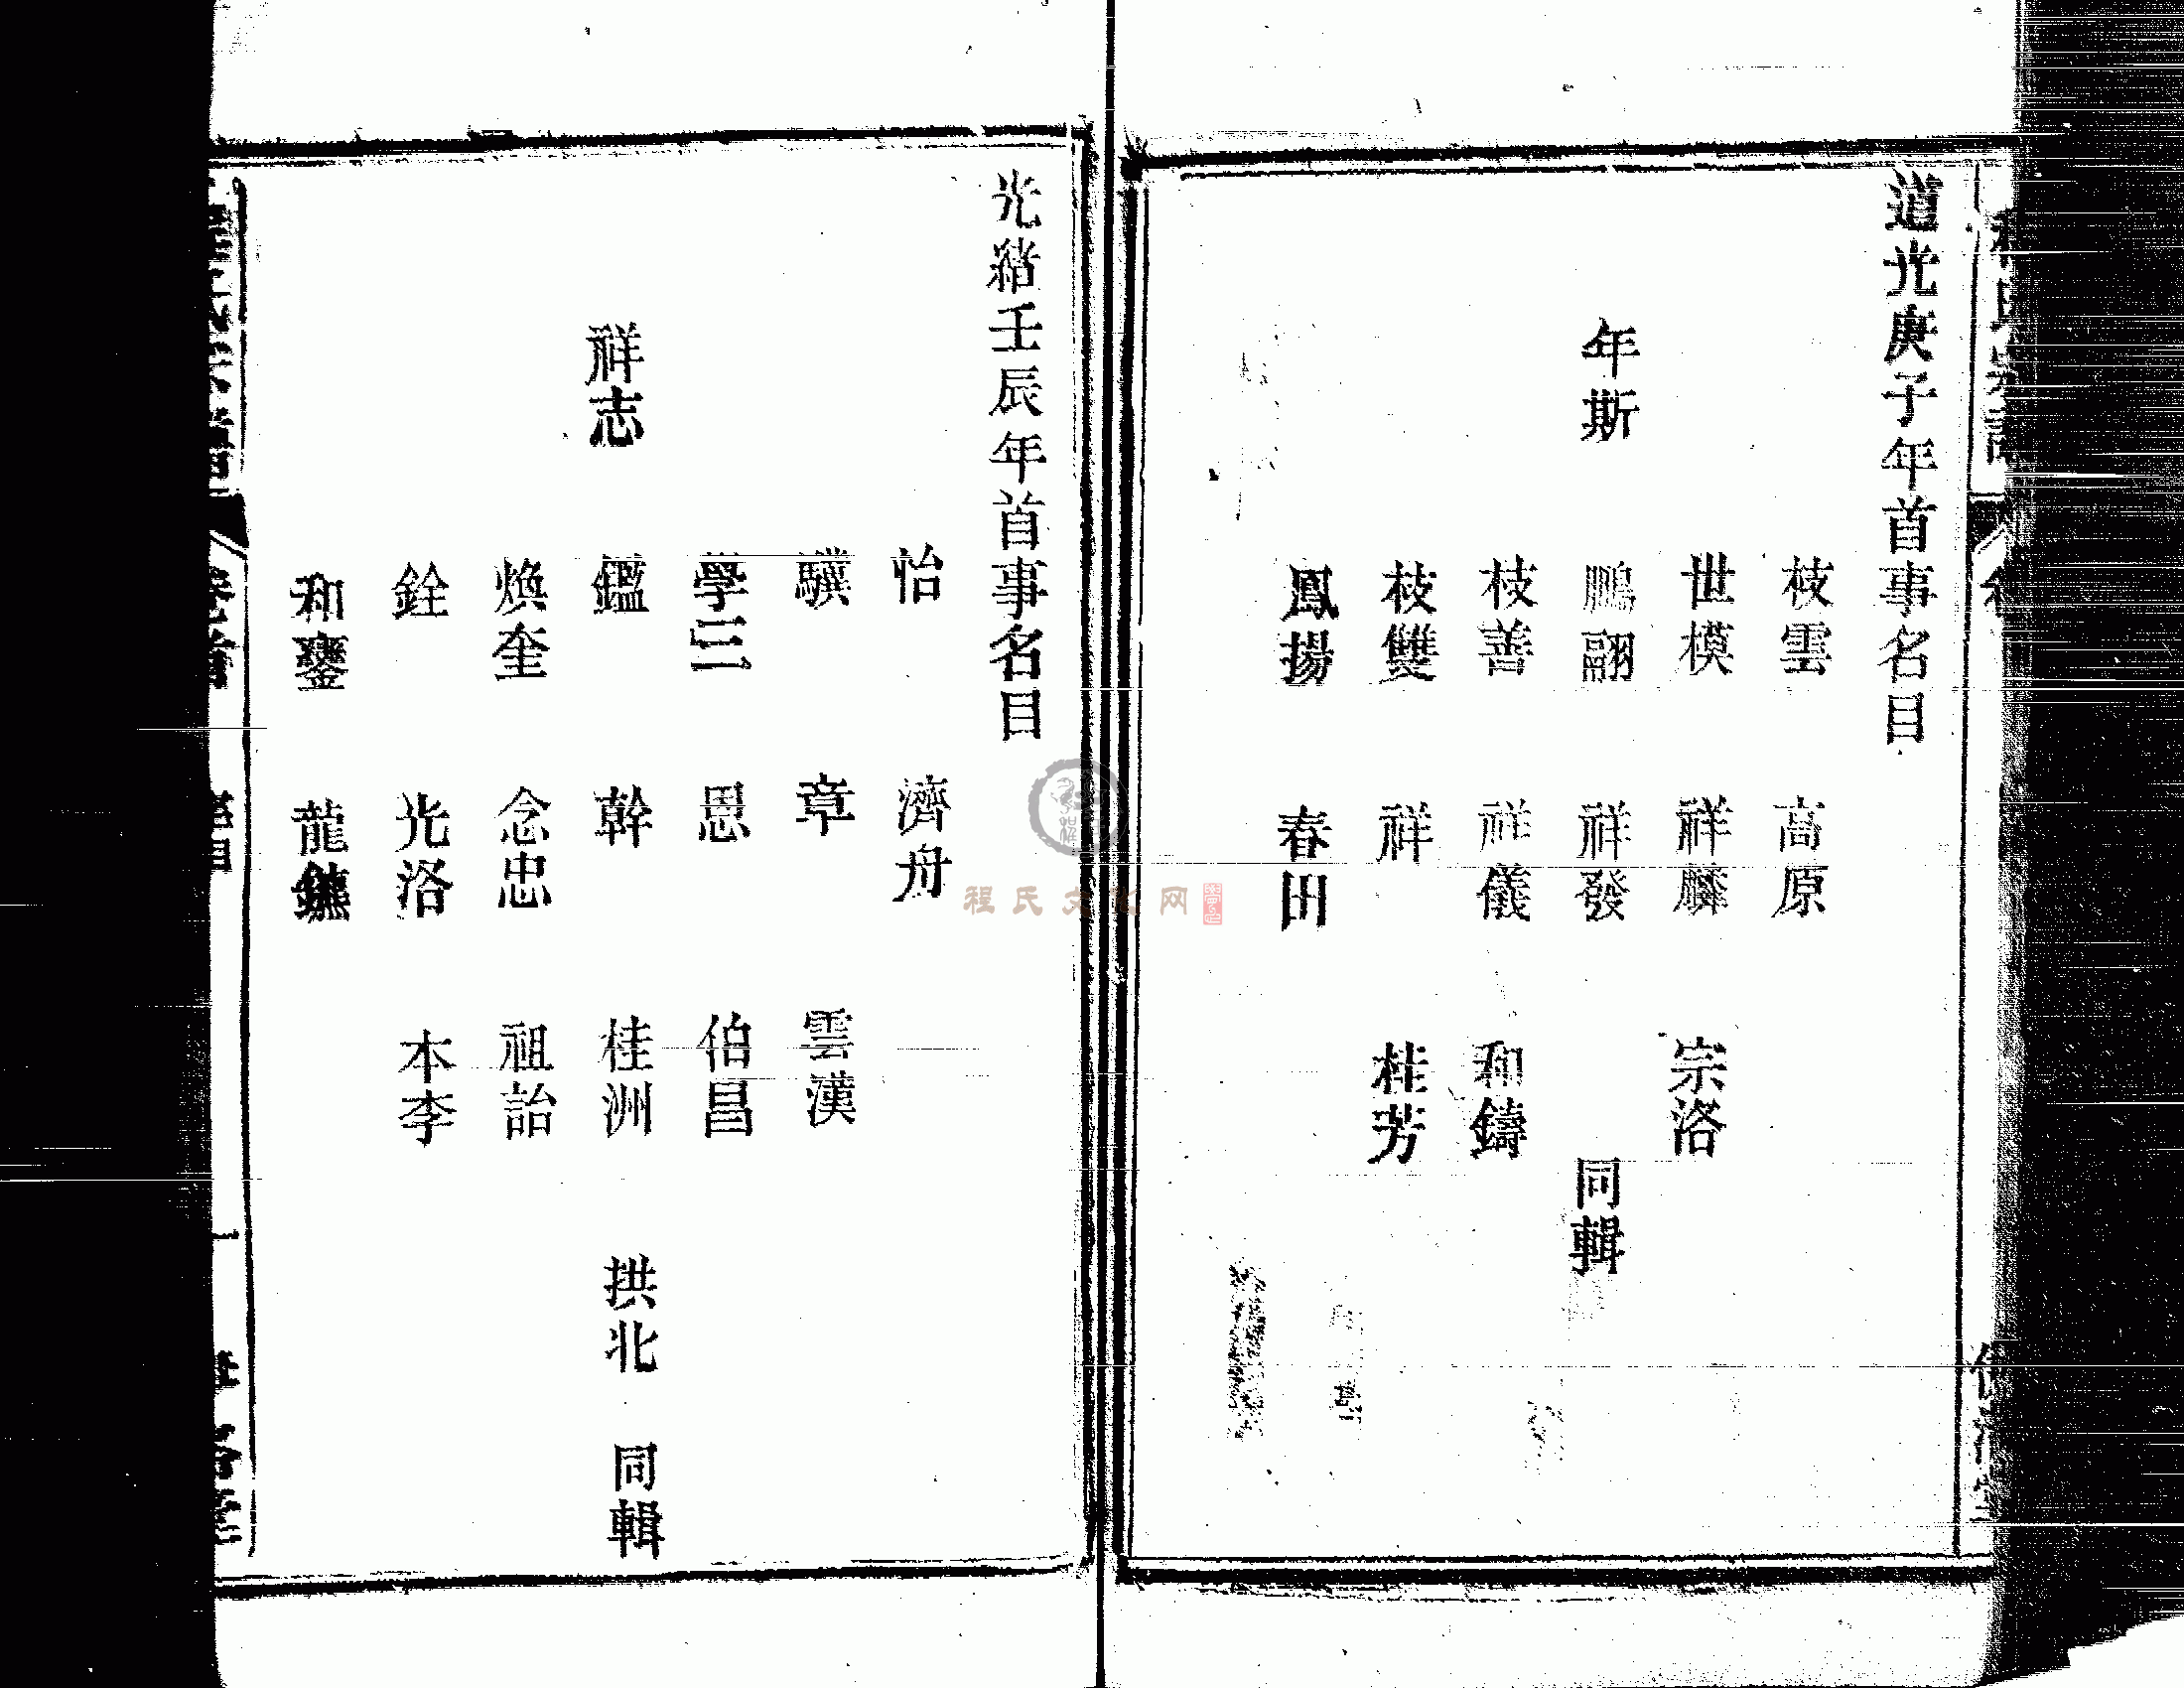 道光庚子年首事名目
枝雲 高原
世模 祥麟 宗洛
年斯 鵬翮 祥發 同輯
枝善 祥儀 和鑄
枝雙 祥 桂芳
鳳揚 春田
光緒壬辰年首事名目
怡 濟舟
驥 章 雲漢
學三 思 伯昌
祥志 鑑 幹 桂洲 拱北 同輯
煥奎 念忠 祖詒
銓 光洛 本李
和鑾 龍鑣
程氏文化网